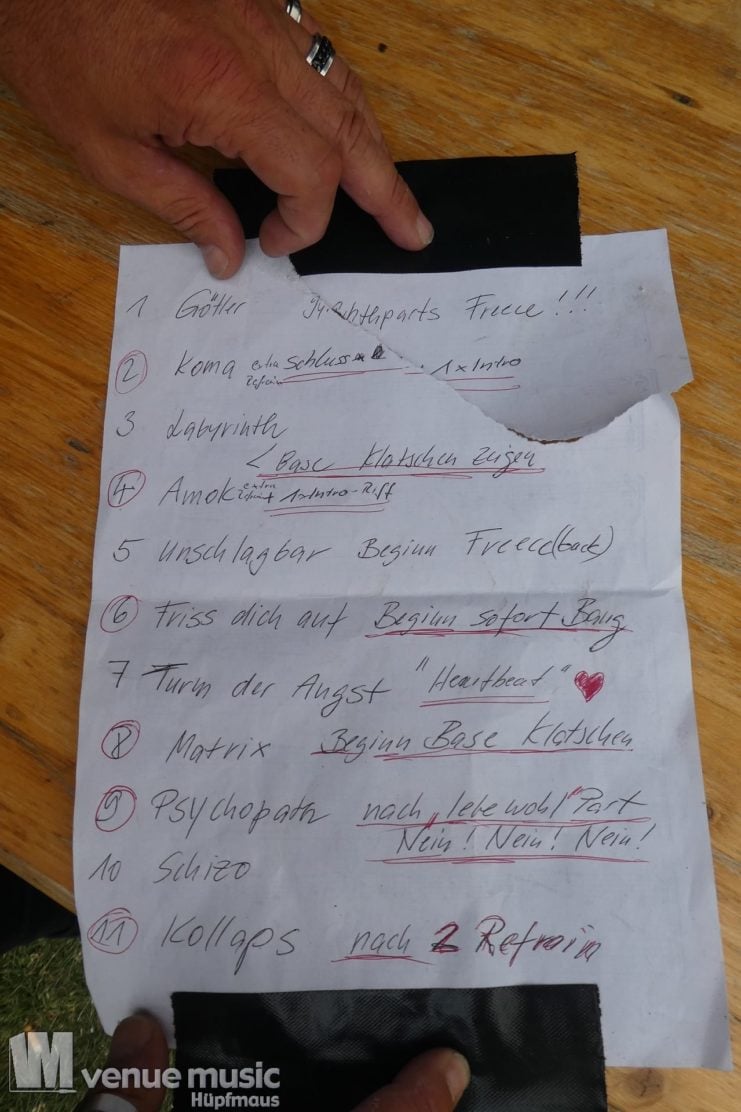 1 Götter Freeze!!!
② Koma extra Refrain Schluss 1x Intro
3 Labyrinth
< Base Klatschen zeigen
④ Amok extra 1x Intro-Riff
5 Unschlagbar Beginn Freeze(back)
⑥ Friss dich auf Beginn sofort Bang
7 Turm der Angst "Heartbeat" ♥
⑧ Matrix Beginn Base Klatschen
⑨ Psychopath nach „lebe wohl" Part
Nein! Nein! Nein!
10 Schizo
⑪ Kollaps nach 2 Refrain
VM venue music
Hüpfmaus